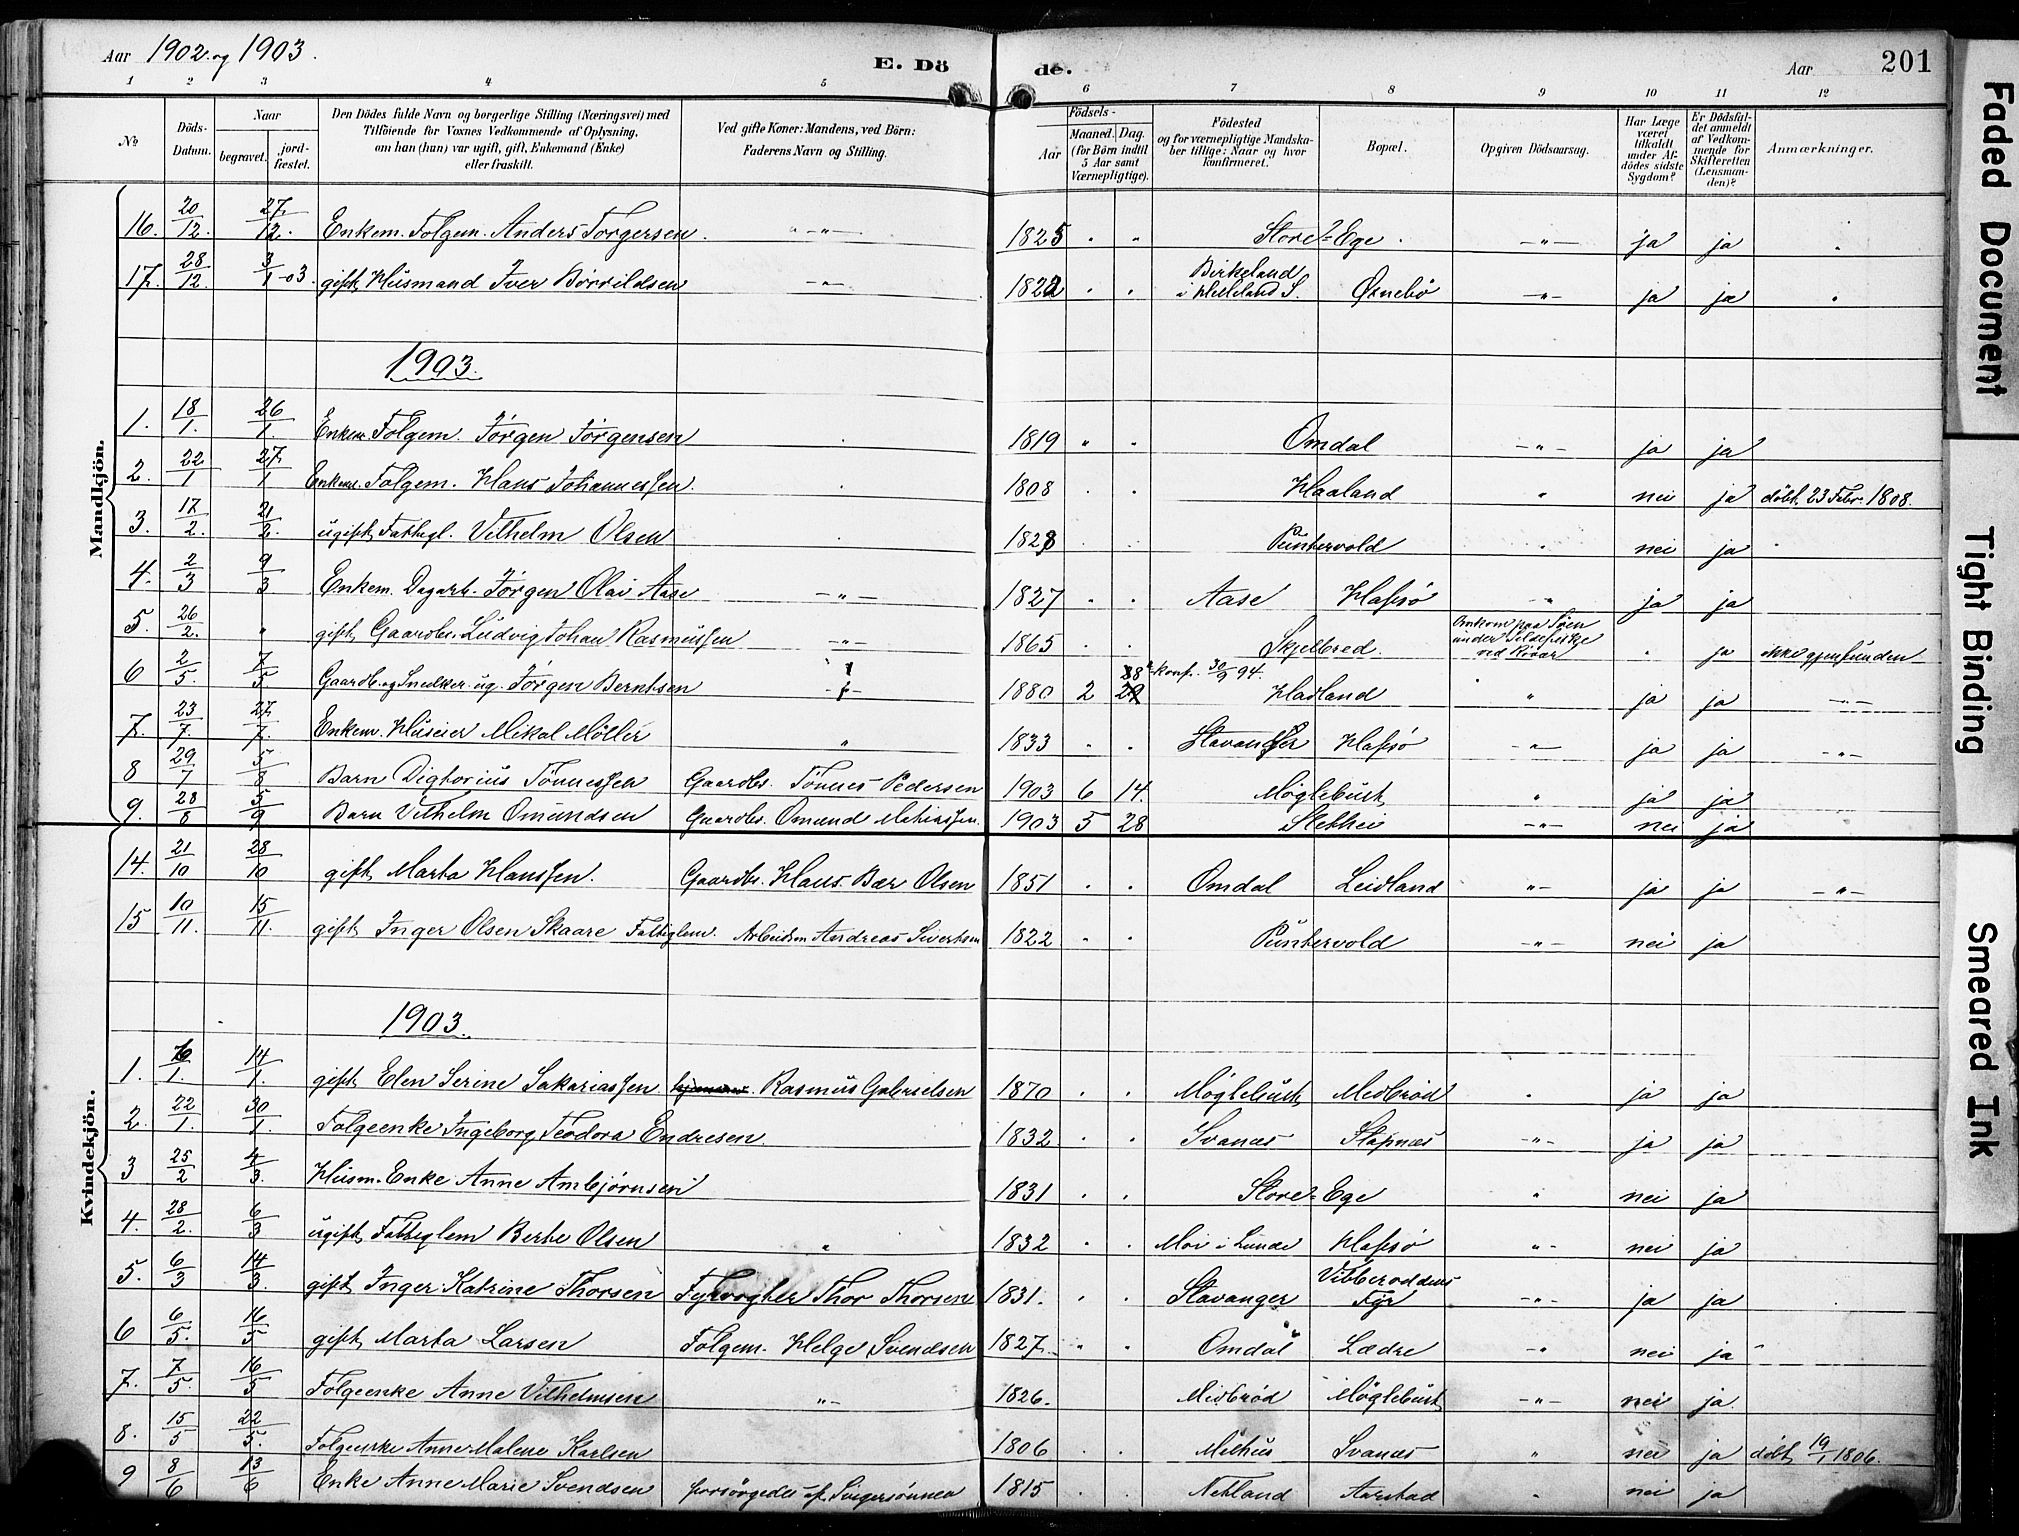 Aar 1902 og 1903. E. Dö de. Aar 201
1 2 3 4 5 6 7 8 9 10 11 12
№ Döds-Datum. Naar begravet. jord-fæstet. Den Dödes fulde Navn og borgerlige Stilling (Næringsvei) med Tilföiende for Voxnes Vedkommende af Oplysning, om han (hun) var ugift, gift, Enkemand (Enke) eller fraskilt. Ved gifte Koner: Mandens, ved Börn: Faderens Navn og Stilling. Födsels- Aar Maaned. Dag. (for Börn indtil 5 Aar samt Værnepligtige). Födested og for værnepligtige Mandska-ber tillige: Naar og hvor konfirmeret. Bopæl. Opgiven Dödsaarsag. Har Læge været tilkaldt under Af-dödes sidste Sygdom? Er Dödsfal-det anmeldt af Vedkom-mende for Skifteretten (Lensman-den)? Anmærkninger.
Mandkjön.
16. 20/12. 27./12. Enkem. Folgem. Anders Torgersen. - " - 1825 " " Store-Ege. - " - ja ja "
17. 28/12. 3/1-03. gift Husmand Iver Börrildsen - " - 1822 " " Birkeland i Helleland S. Øxnebö - " - ja ja "
1903.
1. 18/1. 26/1. Enkem. Folgem. Jörgen Jörgensen 1819 " " Omdal - " - ja ja
2. 22/1 27./1 Enkem. Folgem. Hans Johannessen. 1808 " " Haaland " nei ja döbt 23 Febr. 1808.
3. 17/2. 21/2. ugift Fattigl. Vilhelm Olsen 1828 " " Puntervold " nei ja "
4. 2/3 9/3 Enkem. Dagarb. Jörgen Olai Aase - " - 1827 " " Aase Hafsö " ja ja
5. 26/2. " gift Gaardbr. Ludvig Johan Rasmussen - " - 1865 " " Skjelbred. Omkom paa Söen under Sildefiske ved Kvær " ja ikke gjenfunden
6 2/5. 7/5. Gaardb. og Snedker ug. Jörgen Berntsen - " - 1880 2 28 konf. 30/9 94. Hadland " ja ja - " -
7. 23/7. 27./7. Enkem. Huseier Mikal Möller " 1833 " " Stavanger Hafsö - " - ja ja - " -
8 29/7 5/8 Barn Digtorius Tönnessen Gaardbr. Tönnes Pedersen 1903 6 14. Möglebust " ja ja
9. 28/8 5/9 Barn Vilhelm Omundsen Gaardbr. Omund Mathiassen. 1903 5 28 Slethei - " - nei ja
Kvindekjön.
14. 21/10 28/10 gift Marta Hanssen. Gaardbr. Hans Bær Olsen 1851 " " Omdal Leidland " - ja ja - " -
15 10/11. 15/11. gift Inger Olsen Skaare Fattiglem. Arbeidsm Andreas Sivertsen 1822 " " Puntervold - " - nei ja
1903.
1. 6/1. 14/1. gift Elen Serine Sakariassen. Rasmus Gabrielsen 1870 " " Möglebust Midbröd " ja ja
2. 22/1. 30/1. Folgeenke Ingeborg Teodora Endresen. 1832 " " Svanes Stapnes - " - ja ja
3 25/2 4/3. Husm. Enke Anne Ambjörnsen 1831 " " Store-Ege " nei ja
4. 28/2. 6/3 ugift Fattiglem Berte Olsen " 1832 " " Moi i Lunde Hafsö " - nei ja
5. 6/3 14/3. gift Inger Katrine Thorsen Fyrvogter Thor Thorsen 1831. " " Stavanger Vibberoddens Fyr - " - ja ja
6 6/5. 16/5 gift Marta Larsen Folgem. Helge Svendsen 1827. " " Omdal Lædre - " nei ja "
7. 7/5. 16/5 Folgeenke Anne Vilhelmsen " - 1826. Midbröd Möglebust - " - nei ja
8. 15/5 22/5. Folgeenke Anne Malene Karlsen 1806 " " Mælhus Svanes " nei ja döbt 19/1 1806.
9 8/6 13/6 Enke Anne Marie Svendsen forsörgedes af Svigersönnen 1815 " " Netland Aarstad " nei ja
Faded Document
Tight Binding
Smeared Ink